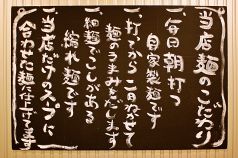 当店麺のこだわり
、毎日朝打つ
自家製麺です
、打ってから一日ねかせて
麺のうまみをだします
、細麺でこしがある
縮れ麺です
、当店だけのスープに
合わせた麺に仕上げます